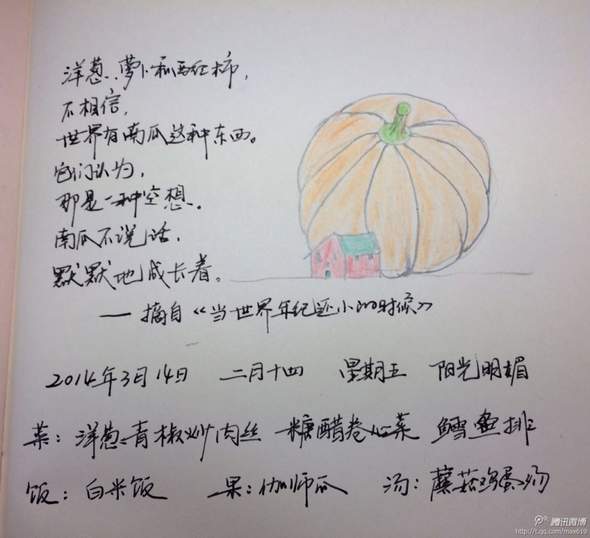 洋葱、萝卜和西红柿,
不相信,
世界有南瓜这种东西。
它们认为,
那是一种空想。
南瓜不说话,
默默地成长着。
——摘自《当世界年纪还小的时候》
2014年3月14日 二月十四 星期五 阳光明媚
菜:洋葱青椒炒肉丝 糖醋卷心菜 鳕鱼排
饭:白米饭 果:伽师瓜 汤:蘑菇鸡蛋汤
腾讯微博
http://t.qq.com/max619